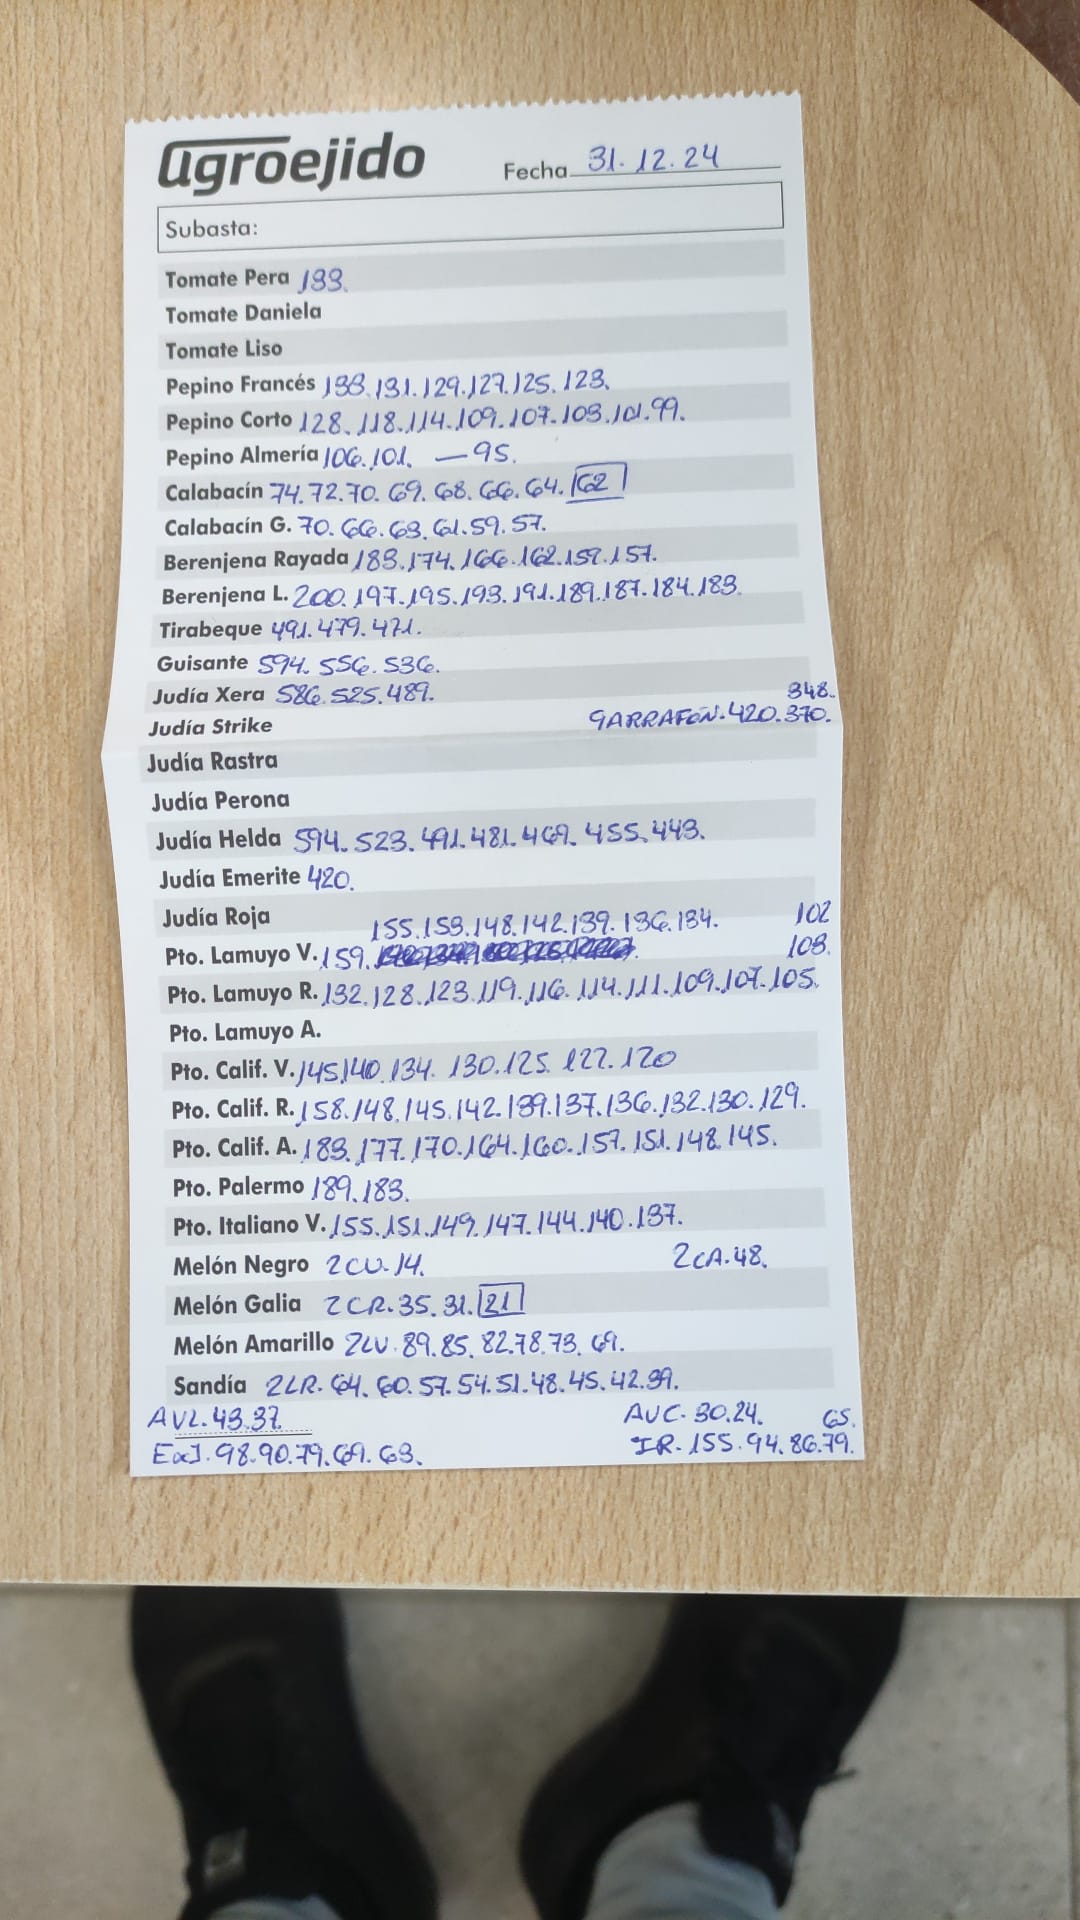 agroejido Fecha 31.12.24
Subasta:
Tomate Pera 133.
Tomate Daniela
Tomate Liso
Pepino Francés 133.131.129.127.125.123.
Pepino Corto 128.118.114.109.107.103.101.99.
Pepino Almería 106.101. — 95.
Calabacín 74.72.70.69.68.66.64.62
Calabacín G. 70.66.63.61.59.57.
Berenjena Rayada 183.174.166.162.159.157.
Berenjena L. 200.197.195.193.191.189.187.184.183.
Tirabeque 491.479.471.
Guisante 594.556.536.
Judía Xera 586.525.489. 348.
Judía Strike GARRAFÓN.420.370.
Judía Rastra
Judía Perona
Judía Helda 594.523.491.481.469.455.443.
Judía Emerite 420.
Judía Roja
155.153.148.142.139.136.134. 102
Pto. Lamuyo V. 159. 103.
Pto. Lamuyo R. 132.128.123.119.116.114.111.109.107.105.
Pto. Lamuyo A.
Pto. Calif. V. 145.140.134.130.125.122.120
Pto. Calif. R. 158.148.145.142.139.137.136.132.130.129.
Pto. Calif. A. 183.177.170.164.160.157.151.148.145.
Pto. Palermo 189.183.
Pto. Italiano V. 155.151.149.147.144.140.137.
Melón Negro 2CU.14. 2CA.48.
Melón Galia 2CR.35.31.21
Melón Amarillo 2LV.89.85.82.78.73.69.
Sandía 2LR.64.60.57.54.51.48.45.42.39.
AVL.43.37. AUC.30.24. 65.
98.90.79.69.63. IR.155.94.86.79.